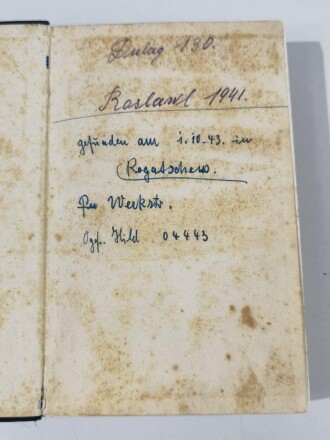 130.
Rosland 1941.
gefunden am 1.10.43. in
Rogatschew.
Pz Werkstr.
Ogfr. Hild 04443